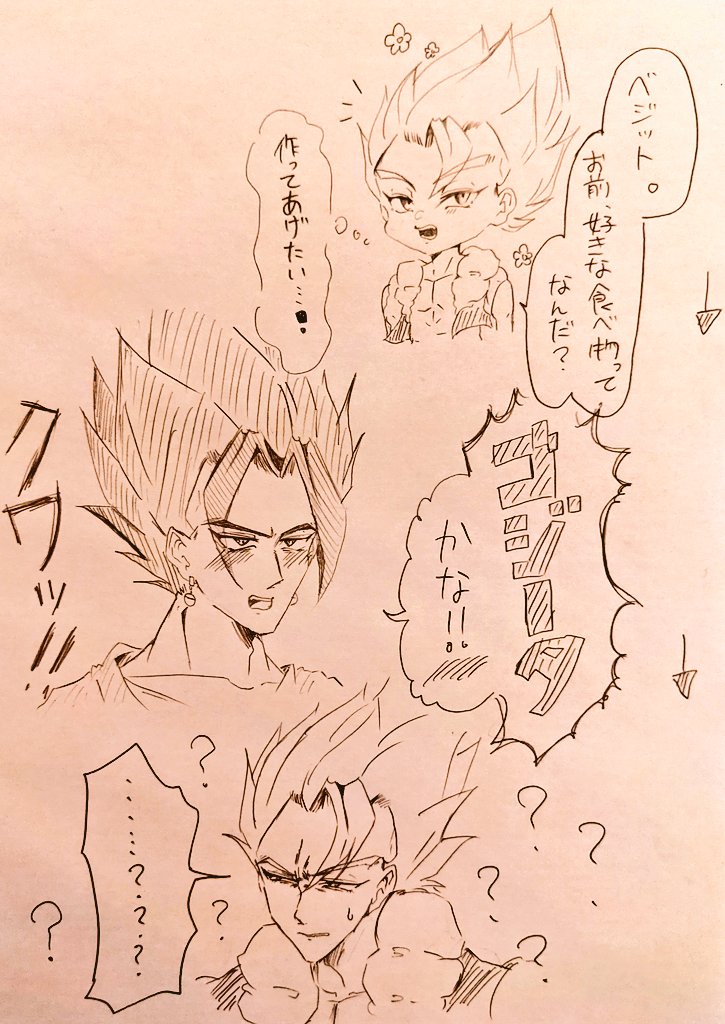 ベジット。
お前、好きな食べ物って
なんだ?
作ってあげたい…!
ゴジータ
かな!!
クワッ!!
………???
?
?
?
?
?
?
?